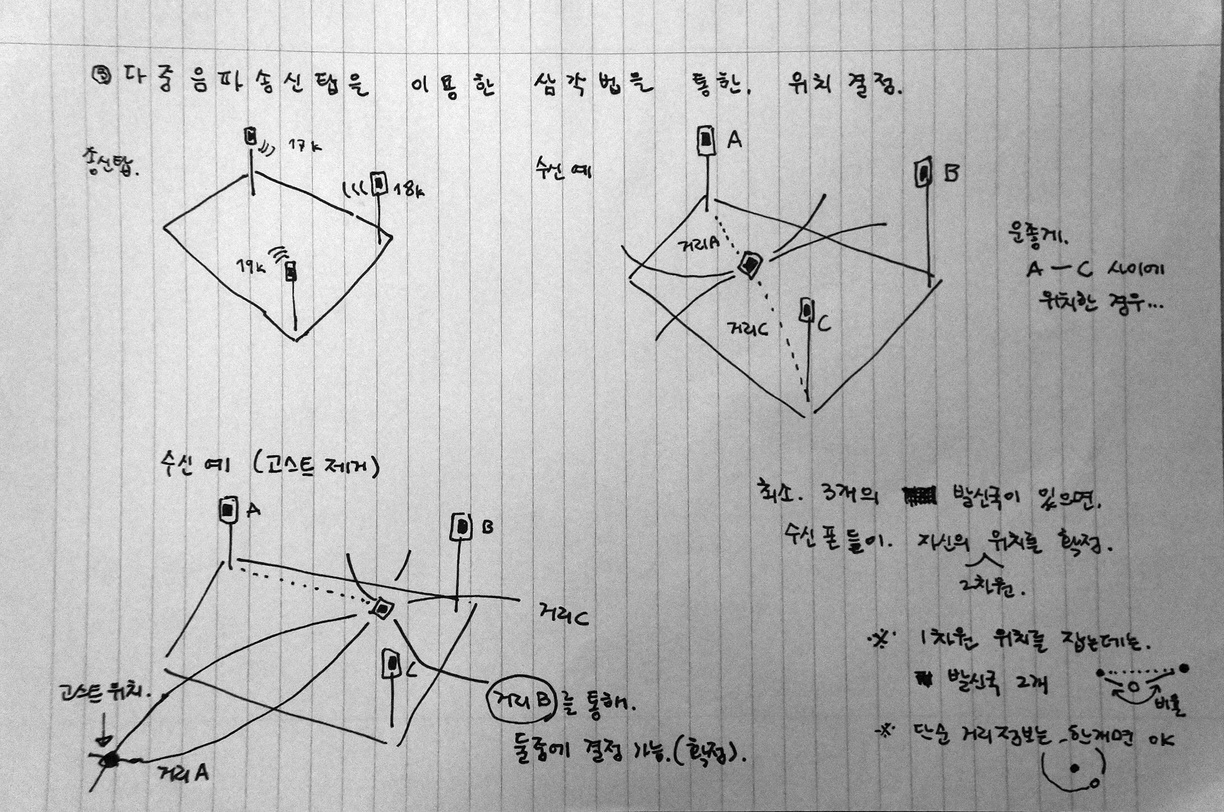 ⑤ 다중음파송신탑을 이용한 삼각법을 통한. 위치결정.
송신탑.
17k
18k
19k
수신 예
A
B
거리A
거리C
C
운좋게.
A — C 사이에
위치한 경우...
수신 예 (고스트 제거)
A
B
거리C
C
고스트 위치.
거리A
거리B를 통해.
둘중에 결정 가능.(확정).
최소. 3개의 발신국이 있으면.
수신폰들이. 자신의 위치를 확정.
2차원.
※ 1차원 위치를 잡는데는.
발신국 2개
비율
※ 단순 거리정보는 한개면 OK